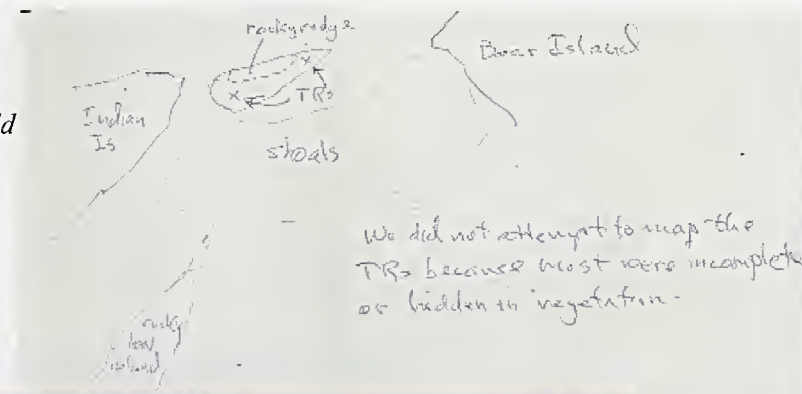 rocky ridge
Bear Island
Indian
Is
x
x
TRs
shoals
We did not attempt to map the
TRs because most were incomplete
or hidden in vegetation.
rocky
low
island